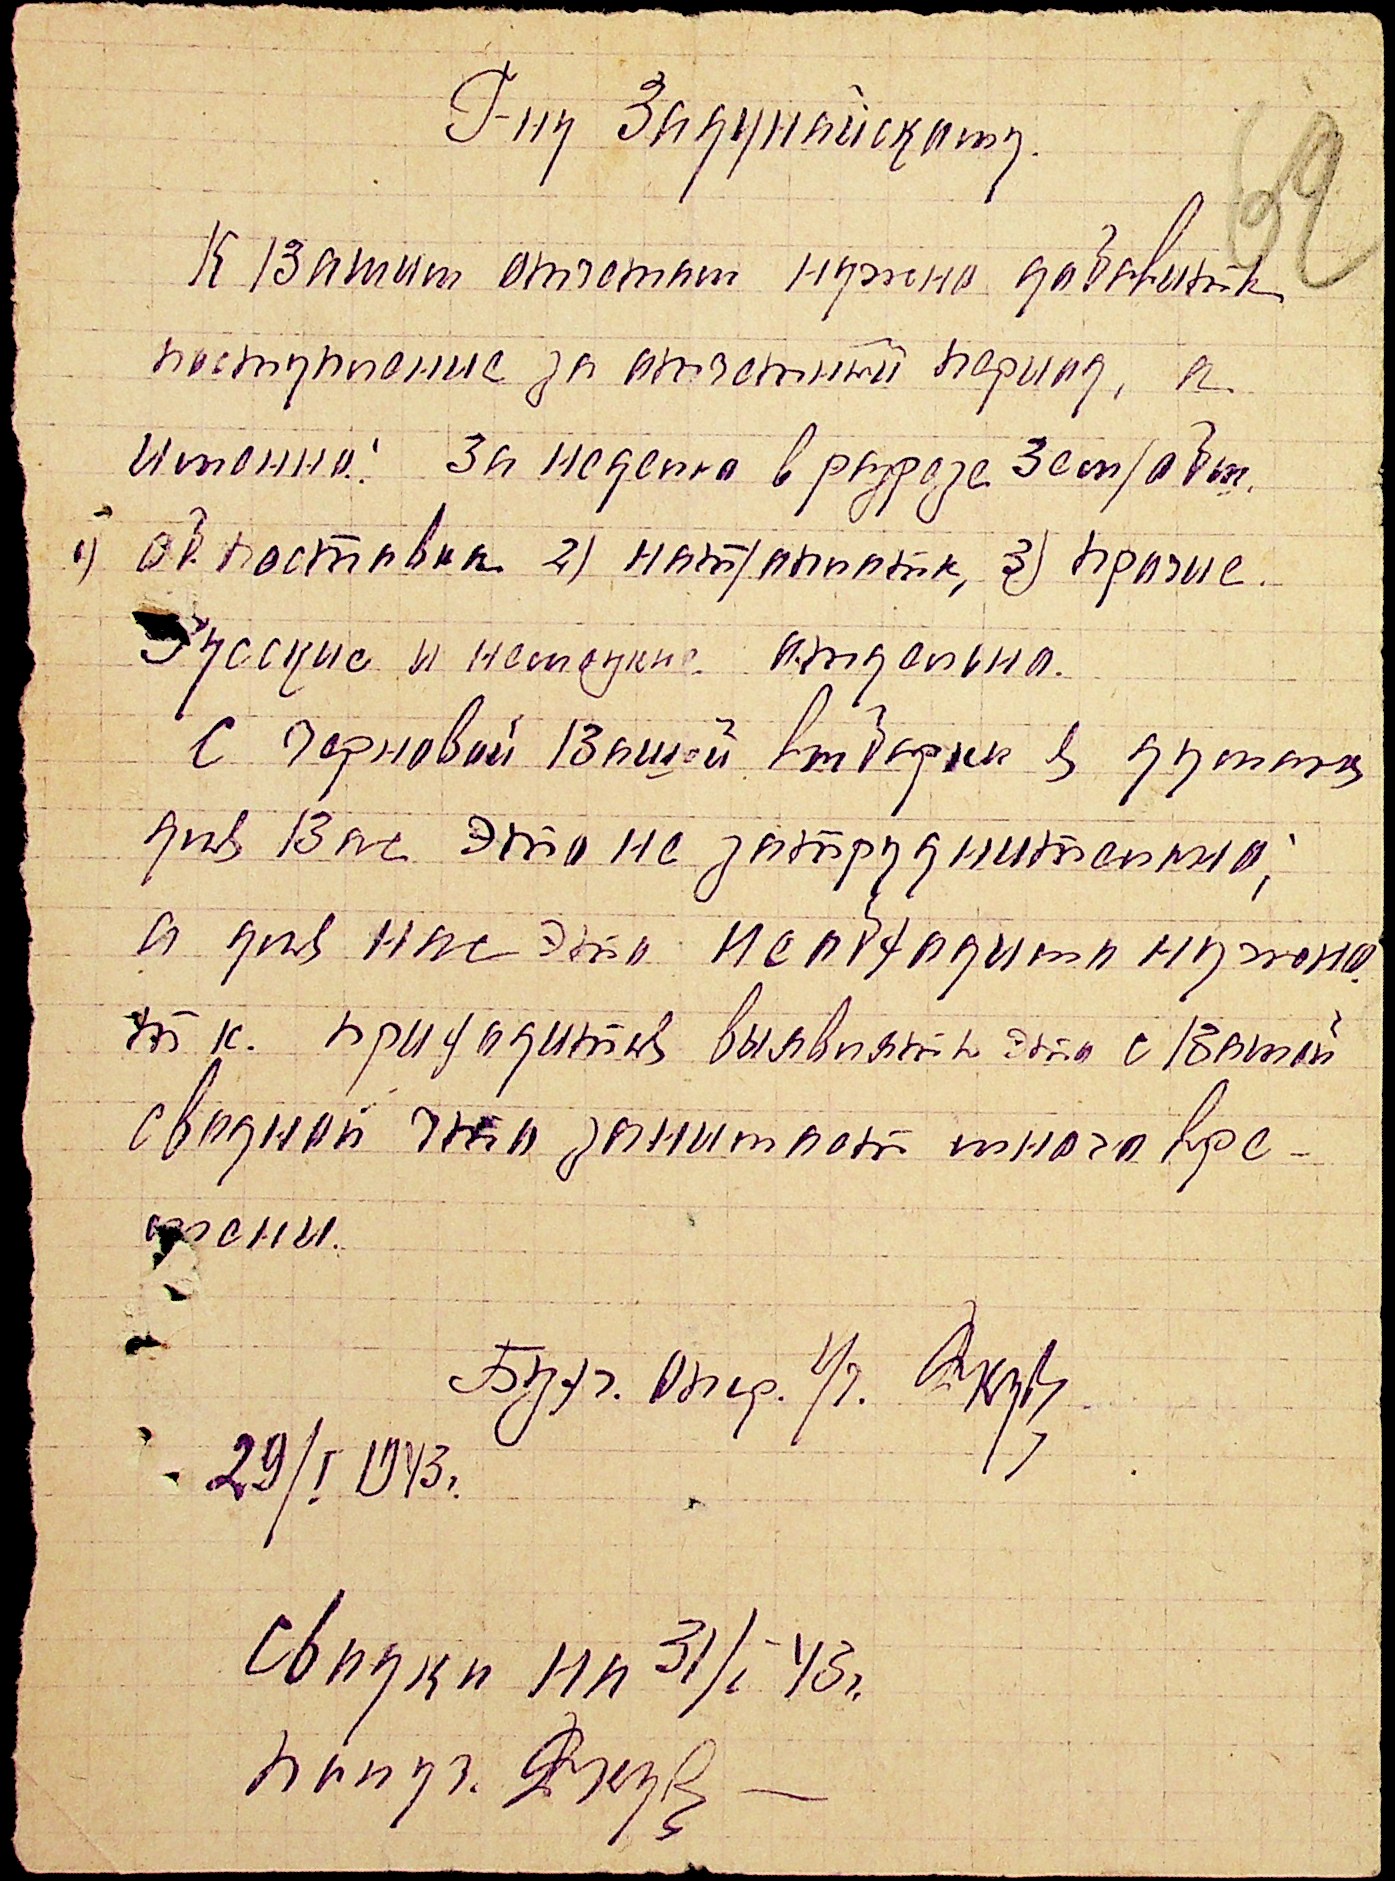 Г-ну Задунайскому.
62
К Вашим отчетам нужно добавить
поступление за отчетный период, а
именно: За неделю в разрезе Зем/общ.
1) об. поставка 2) нат/оплата, 3) прочие.
Русские и немецкие отдельно.
С черновой Вашей выборки я думаю
для Вас это не затруднительно,
а для нас это необходимо нужно.
т. к. приходится выявлять это с Вашей
сводной что занимает много вре-
мени.
Бухг. опер. ч/г.
29/I 1943г.
Сводка на 31/I-43г.
получ.